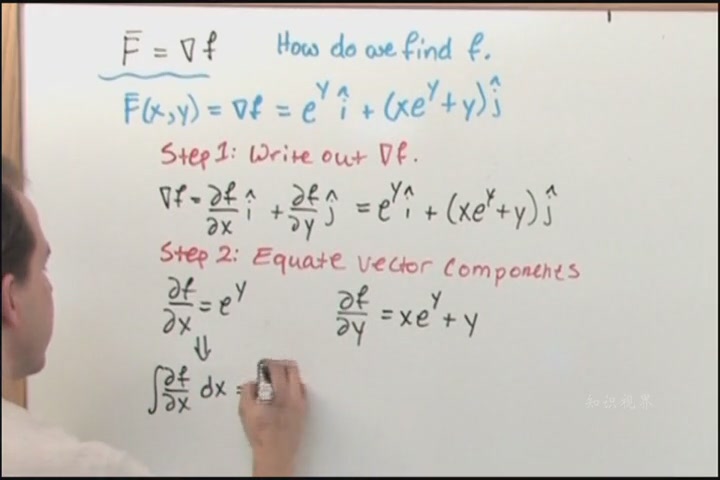 F̄ = ∇f How do we find f.
F̄(x,y) = ∇f = e^y î + (xe^y + y) ĵ
Step 1: Write out ∇f.
∇f = ∂f/∂x î + ∂f/∂y ĵ = e^y î + (xe^y + y) ĵ
Step 2: Equate vector components
∂f/∂x = e^y ∂f/∂y = xe^y + y
⇓
∫ ∂f/∂x dx =
知识视界